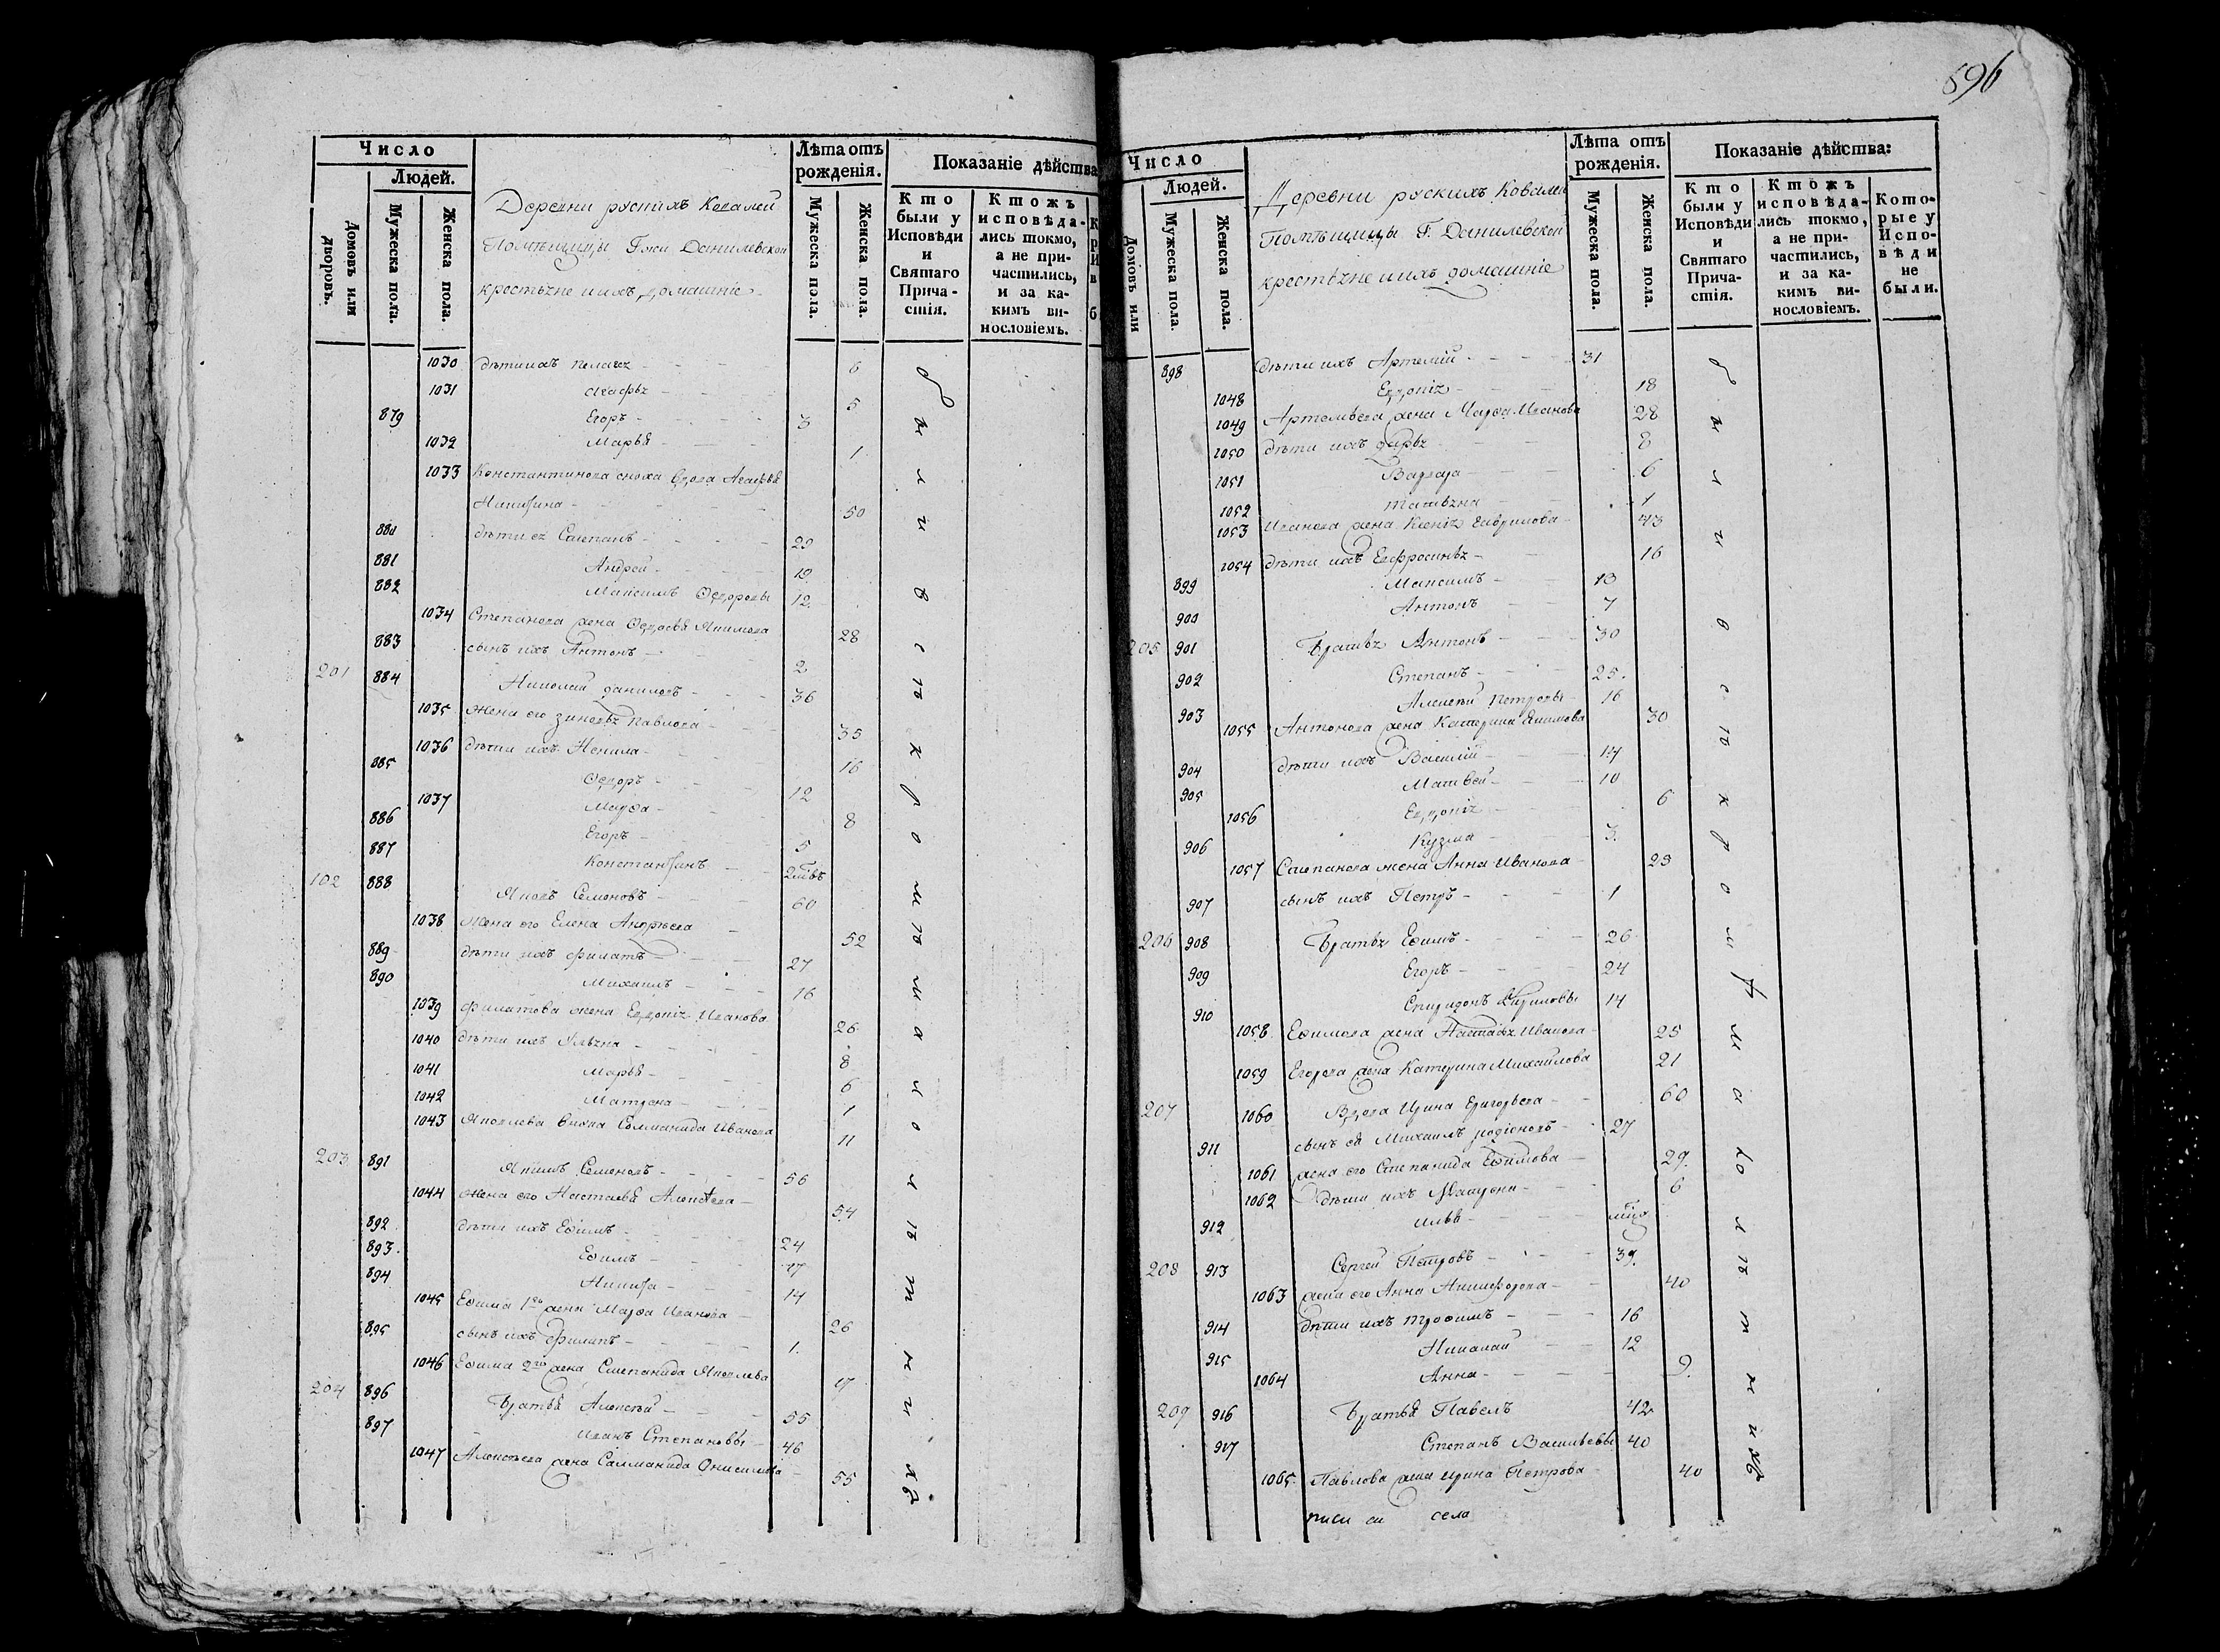 Число
Людей.
Домовъ или дворовъ.
Мужеска пола.
Женска пола.
Деревни рускихъ Ковалей
Помѣщицы Гжи Данилевской
крестьяне и ихъ домашніе
Лѣта отъ рожденія.
Мужеска пола.
Женска пола.
Показаніе дѣйства
Кто были у Исповѣди и Святаго Прича-стія.
Ктожъ исповѣда-лись токмо, а не при-частились, и за ка-кимъ ви-нословіемъ.
1030 дѣти ихъ Пелагея 6
1031 Агафья 5
879 Егоръ 3
1032 Марья 1
1033 Константинова сноха вдова Агафья
Никитина 50
880 дѣти ея Степанъ 29
881 Андрей 19
882 Максимъ Ѳедоровы 12
1034 Степанова жена Ѳедосья Якимова 28
883 сынъ ихъ Антонъ 2
201 884 Николай Даниловъ 36
1035 жена его Зиновья Павлова 35
1036 дѣти ихъ Ненила 16
885 Ѳедоръ 12
1037 Марѳа 8
886 Егоръ 5
887 Константинъ
102 888 Яковъ Семеновъ 60
1038 жена его Елена Андрѣева 52
889 дѣти ихъ Филатъ 27
890 Михаилъ 16
1039 Филатова жена Евдокія Иванова 26
1040 дѣти ихъ Ульяна 8
1041 Марья 6
1042 Матрена 1
1043 Яковлева внука Соломанида Иванова 11
203 891 Якимъ Семеновъ 56
1044 жена его Настасья Алексѣева 54
892 дѣти ихъ Ефимъ 24
893 Ефимъ 17
894 Никита 14
1045 Ефима 1го жена Марѳа Иванова 26
895 сынъ ихъ Филипъ 1
1046 Ефима 2го жена Степанида Яковлева 17
204 896 Братья Алексѣй 55
897 Иванъ Степановы 46
1047 Алексѣева жена Саломанида Онисимова 55
596
Число
Людей.
Домовъ или
Мужеска пола.
Женска пола.
Деревни рускихъ Ковалей
Помѣщицы Г. Данилевской
крестьяне и ихъ домашніе
Лѣта отъ рожденія.
Мужеска пола.
Женска пола.
Показаніе дѣйства:
Кто были у Исповѣди и Святаго Прича-стія.
Ктожъ исповѣда-лись токмо, а не при-частились, и за ка-кимъ ви-нословіемъ.
Кото-рые у Испо-вѣди не были.
898 дѣти ихъ Артемій 31
1048 Евдокія 18
1049 Артемьева жена Марѳа Иванова 28
1050 дѣти ихъ Дарья 8
1051 Варвара 6
1052 Татьяна 1
1053 Иванова жена Ксенія Гаврилова 43
1054 дѣти ихъ Евфросинья 16
899 Максимъ 13
900 Антонъ 7
205 901 Братья Антонъ 30
902 Степанъ 25.
903 Алексѣй Петровы 16
1055 Антонова жена Катерина Якимова 30
904 дѣти ихъ Василій 14
905 Матвей 10
1056 Евдокія 6
906 Кузма 3.
1057 Степанова жена Анна Иванова 23
907 сынъ ихъ Петръ 1
206 908 Братья Ефимъ 26
909 Егоръ 24
910 Спиридонъ Кириловы 14
1058 Ефимова жена Настасья Иванова 25
1059 Егорова жена Катерина Михайлова 21
207 1060 Вдова Ирина Григорьева 60
911 сынъ ея Михаилъ Родіоновъ 27
1061 жена его Степанида Ефимова 29.
1062 дѣти ихъ Матрена 6
912 Илья
208 913 Сергей Петровъ 39.
1063 жена его Анна Никифорова 40
914 дѣти ихъ Трофимъ 16
915 Николай 12
1064 Анна 9.
209 916 Братья Павелъ 42
917 Степанъ Васильевы 40
1065. Павлова жена Ирина Петрова 40
писи си села